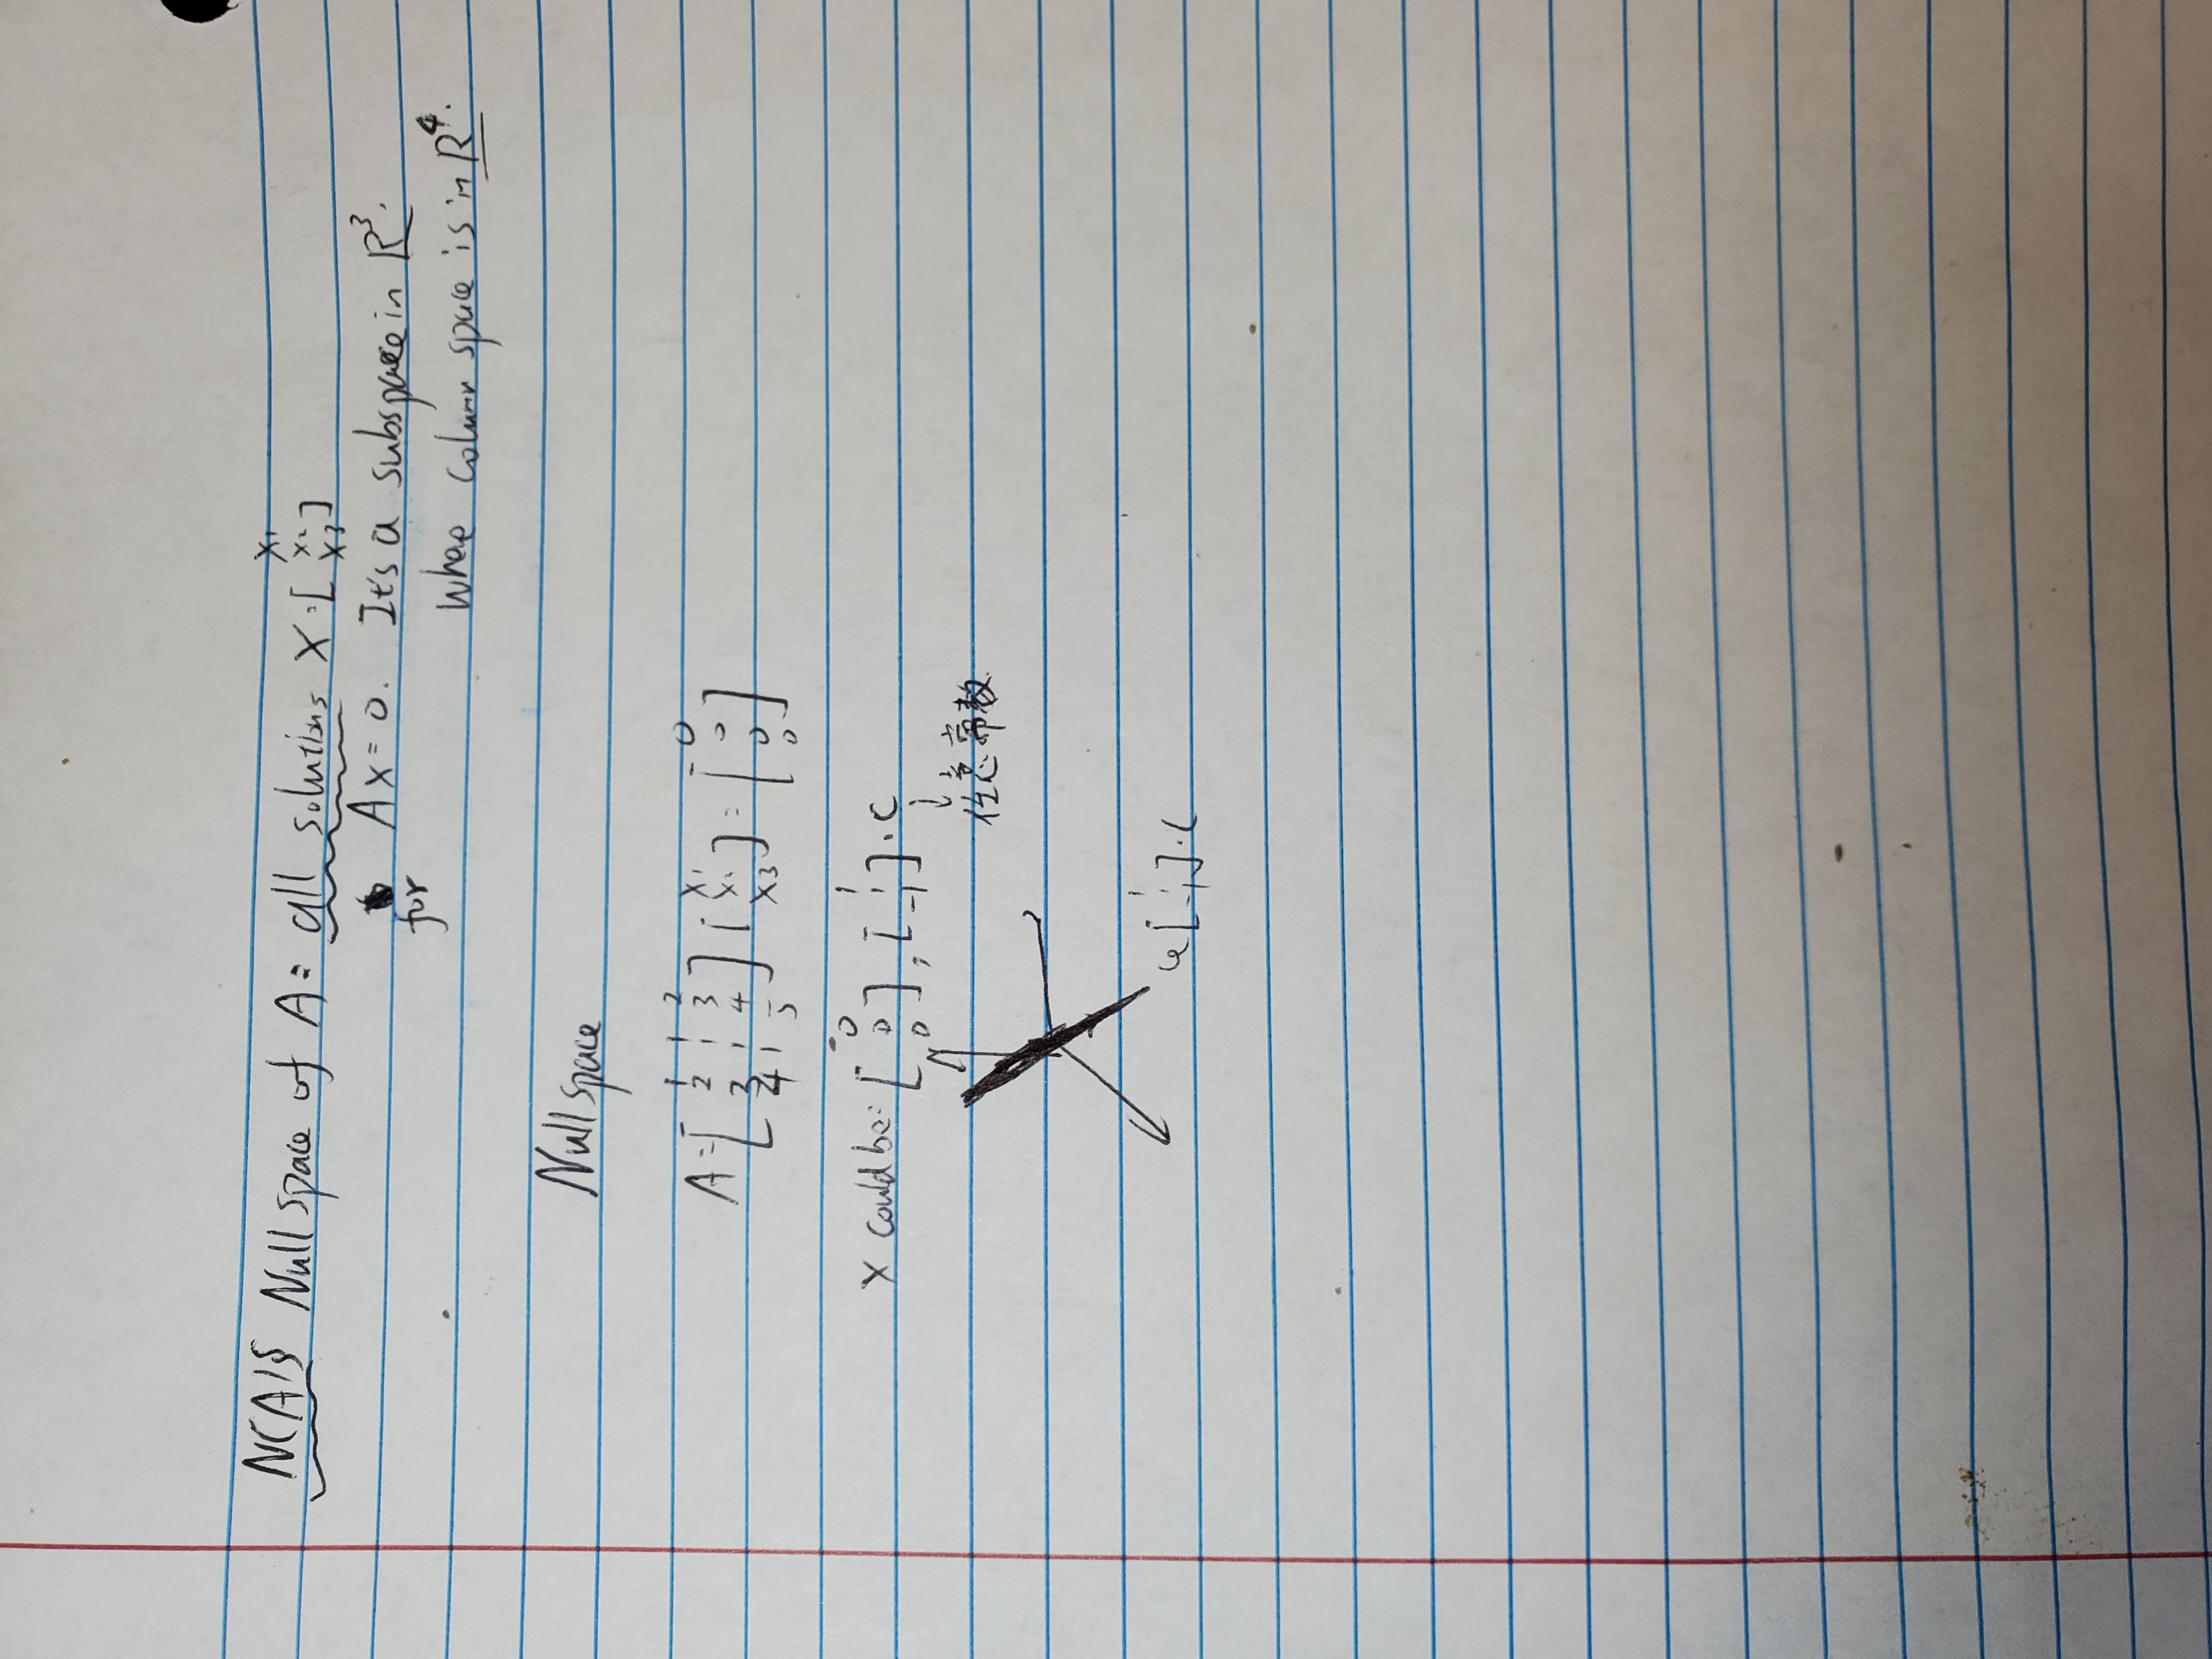 N(A)§ Null space of A = all solutions X = [x₁ x₂ x₃]
for Ax = 0. It's a subspace in R³.
where column space is in R⁴.
Null space
A = [1 1 2; 2 1 3; 3 1 4; 4 1 5] [x₁ x₂ x₃] = [0 0 0 0]
X could be: [0 0 0], [1 1 -1] · C
任意常数
[1 1 -1] · C